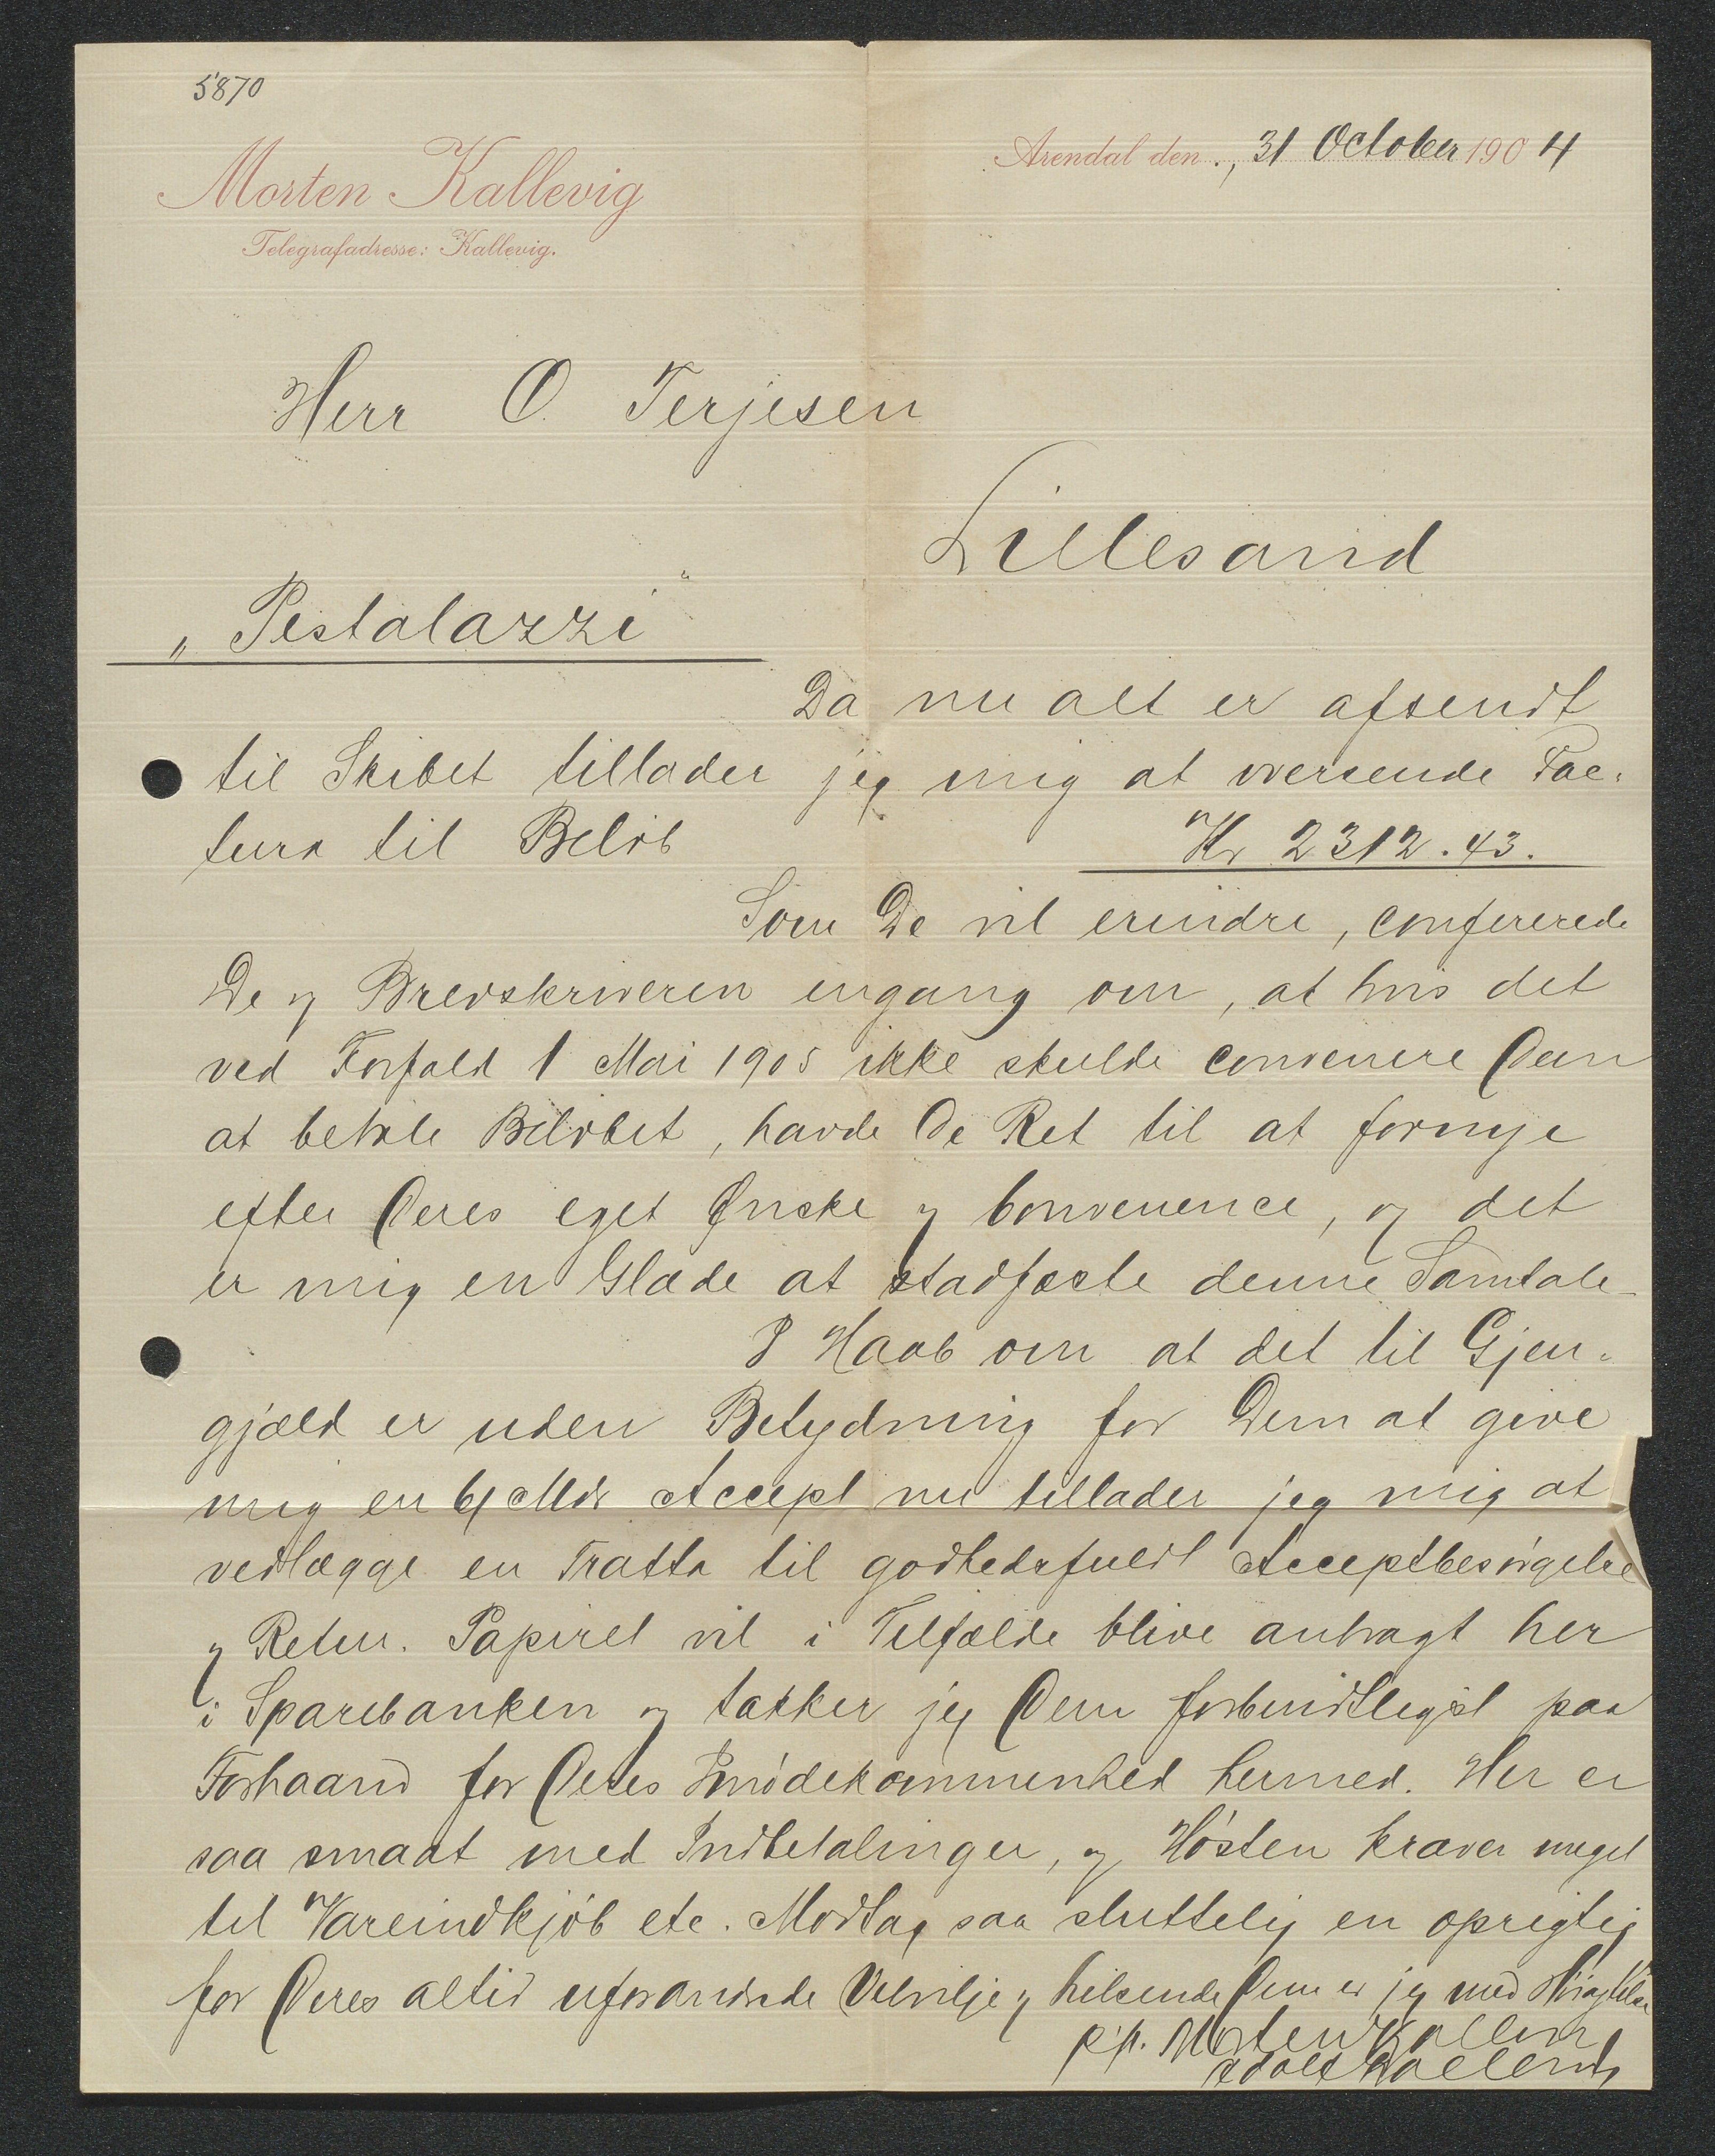 5870
Morten Kallevig
Telegrafadresse: Kallevig.
Arendal den ., 31 October 1904
Herr O. Terjesen
Lillesand
„Pestalazzi"
Da nu alt er afsendt
til Skibet tillader jeg mig at oversende Fac-
tura til Beløb Kr 2312.43.
Som De vil erindre, confererede
De og Brevskriveren engang om, at hvis det
ved Forfald 1 Mai 1905 ikke skulde convenere Dem
at betale Beløbet, havde De Ret til at fornye
efter Deres eget Ønske og Convenence, og det
er mig en Glæde at stadfæste denne Samtale-
I Haab om at det til Gjen-
gjæld er uden Betydning for Dem at give
mig en 6 Mdr Accept nu tillader jeg mig at
vedlægge en Tratta til godhedsfuld Acceptbesørgelse
og Retur. Papiret vil i Tilfælde blive anbragt her
i Sparebanken og takker jeg Dem forbindtligst paa
Forhaand for Deres Imødekommenhed hermed. Her er
saa smaat med Indbetalinger, og Høsten kræver meget
til Vareindkjøb etc. Modtag saa sluttelig en oprigtig
for Deres altid uforandrede Velvilje og hilsende Dem er jeg med Høiagtelse
p.p. Morten Kallevig
Adolf Kallevig